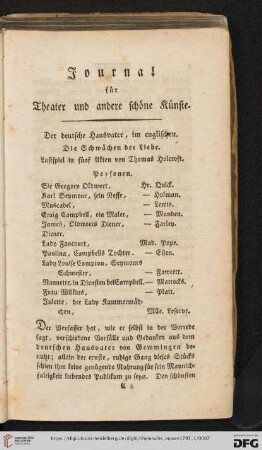 Journal
für
Theater und andere schöne Künste.
Der deutsche Hausvater, im englischen.
Die Schwächen der Liebe.
Lustspiel in fünf Akten von Thomas Holcroft.
Personen.
Sir Gregory Oldwort, Hr. Quick.
Karl Seymour, sein Neffe, — Holman.
Muscadel, — Lewis.
Craig Campbell, ein Maler, — Munden.
James, Oldworts Diener, — Farley.
Diener.
Lady Fancourt, Mad. Pope.
Paulina, Campbells Tochter, — Esten.
Lady Louise Compton, Seymours
Schwester, — Fawcett.
Nannette, in Diensten bei Campbell, — Mattocks.
Frau Wilkins, — Platt.
Julette, der Lady Kammermäd-
chen, Mlle. Leserve.
Der Verfasser hat, wie er selbst in der Vorrede
sagt, verschiedene Vorfälle und Gedanken aus dem
deutschen Hausvater von Gemmingen be-
nutzt; allein der ernste, ruhige Gang dieses Stücks
schien ihm keine genügende Nahrung für sein Mannich-
faltigkeit liebendes Publikum zu seyn. Den schönsten
A 2
UNIVERSITÄTS-
BIBLIOTHEK
HEIDELBERG
gefördert durch die
DFG